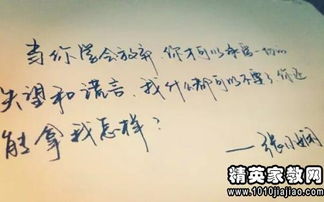 当你学会放弃,你才可以承受一切的
失望和谎言,我什么都可以不要了你还
能拿我怎样?
——张小娴
精英家教网
www.1010jiajiao.com